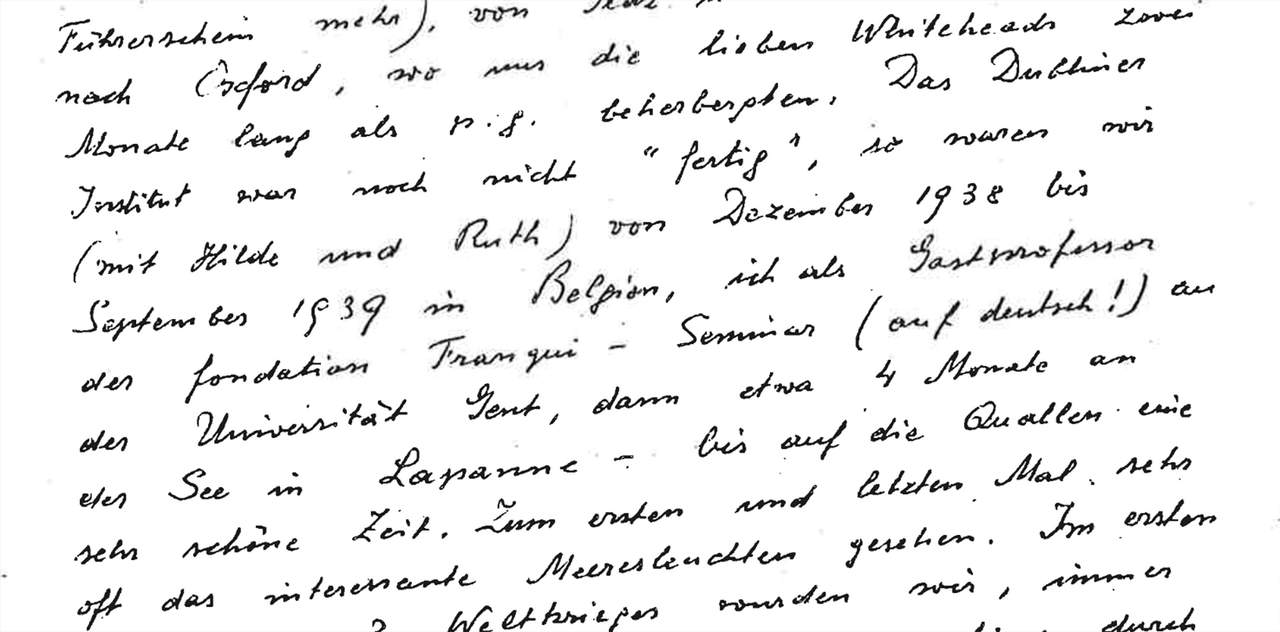 Führerschein mehr), von
nach Oxford, wo uns die lieben Whiteheads zwei
Monate lang als p.g. beherbergten. Das Dubliner
Institut war noch nicht "fertig", so waren wir
(mit Hilde und Ruth) von Dezember 1938 bis
September 1939 in Belgien, ich als Gastprofessor
der fondation Franqui - Seminar (auf deutsch!) an
der Universität Gent, dann etwa 4 Monate an
der See in Lapanne - bis auf die Quallen eine
sehr schöne Zeit. Zum ersten und letzten Mal sehr
oft das interessante Meeresleuchten gesehen. Im ersten
Weltkrieges wurden wir, immer
durch